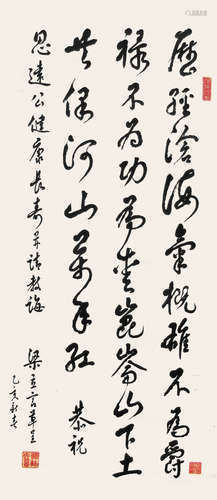 歷經滄海氣概雄不為爵
祿不為功為愛崑崙山下土
共保河山萬年紅 恭祝
思遠公健康長壽并請教誨
梁立言草呈
乙亥